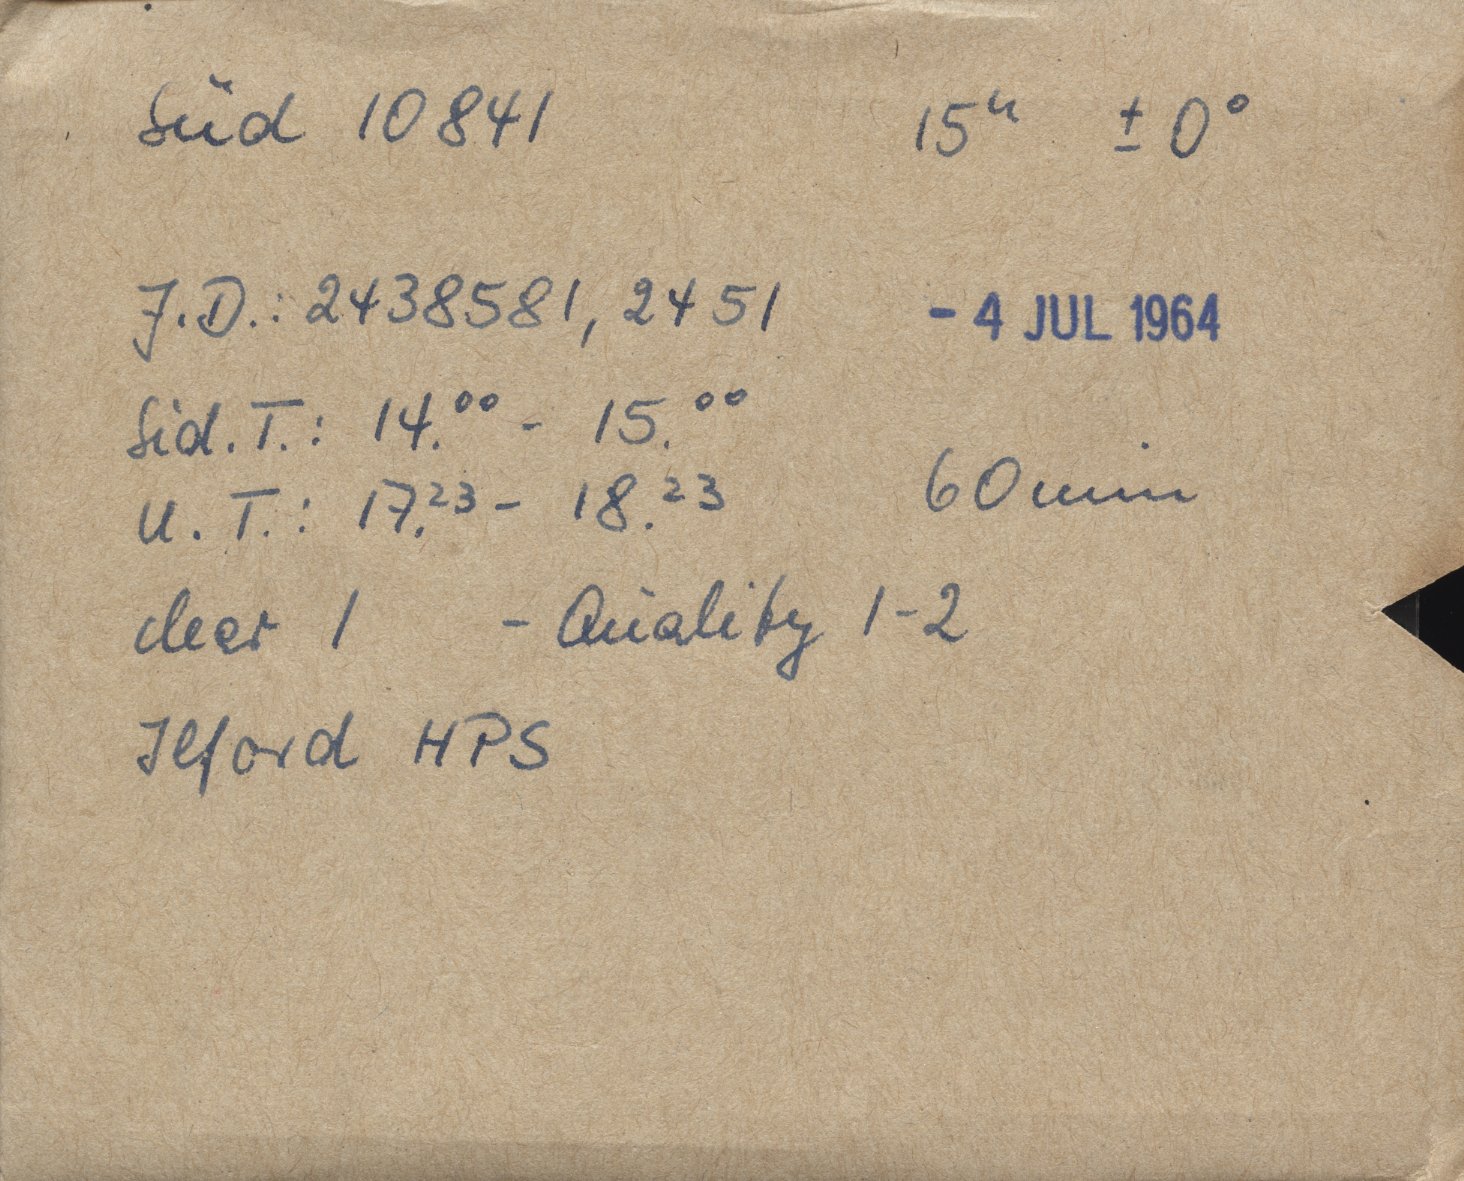 Süd 10841 15ʰ ± 0°
J.D.: 2438581,2451 - 4 JUL 1964
Sid.T.: 14.⁰⁰ - 15.⁰⁰
U.T.: 17.²³ - 18.²³ 60 min
clear 1 - Quality 1-2
Ilford HPS